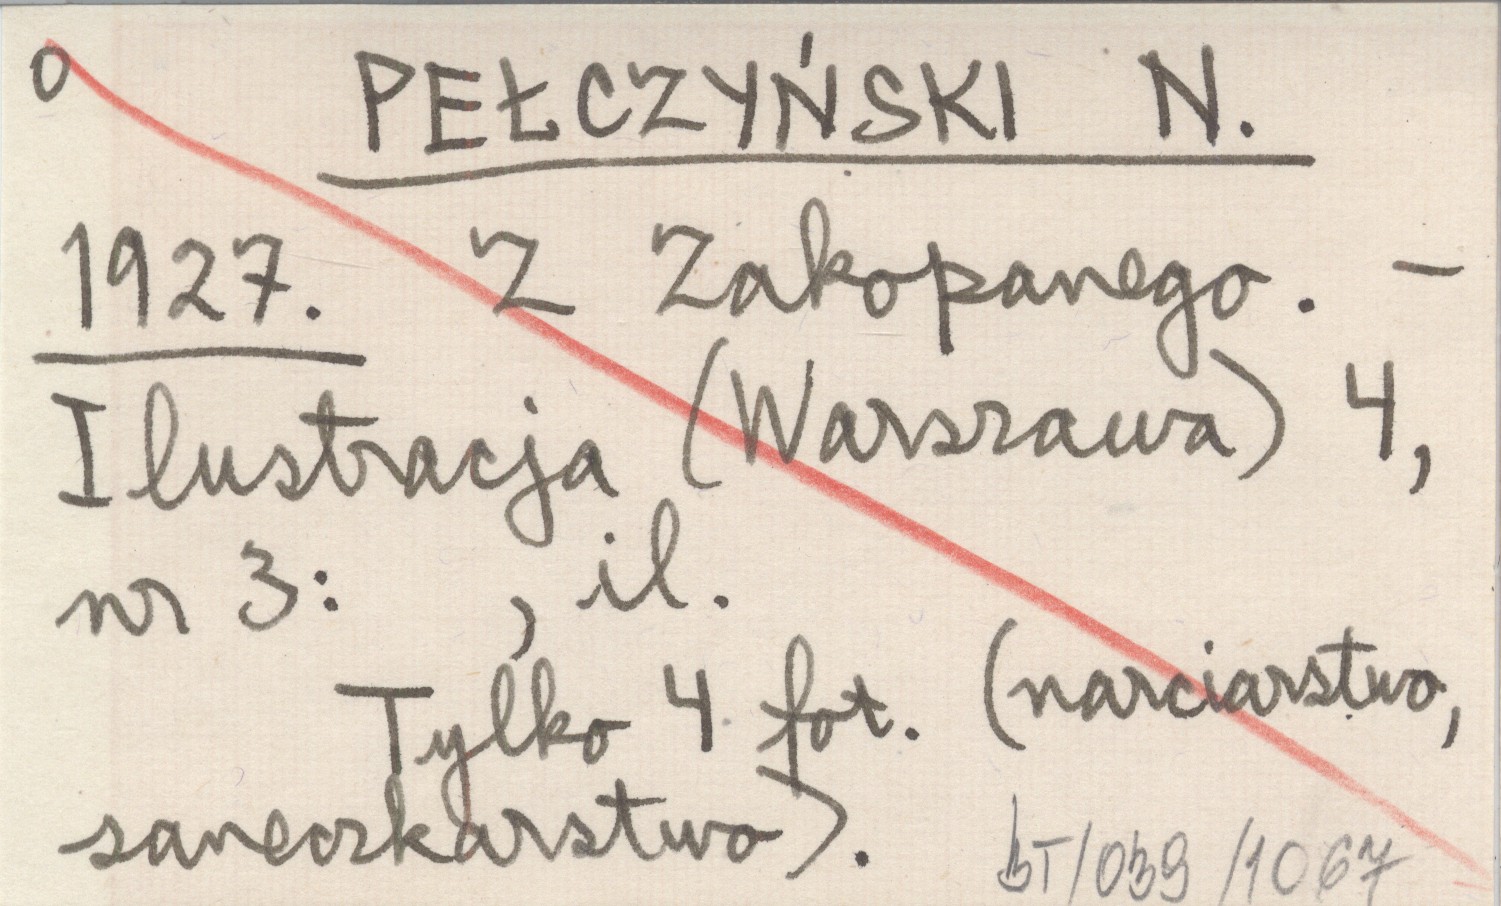 0 PEŁCZYŃSKI N.
1927. Z Zakopanego. —
Ilustracja (Warszawa) 4,
nr 3: , il.
Tylko 4 fot. (narciarstwo,
saneczkarstwo).
BT/039/1067